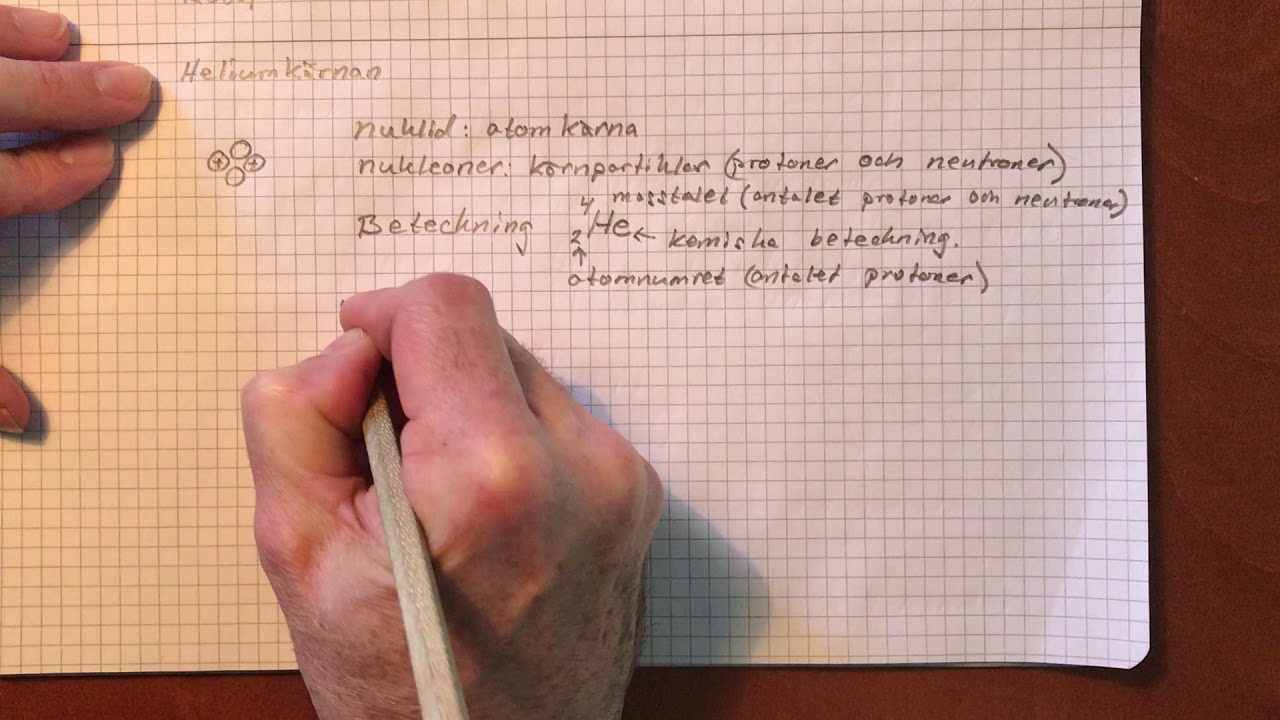 Heliumkärnan
nuklid: atomkärna
nukleoner: kärnpartiklar (protoner och neutroner)
4 masstalet (antalet protoner och neutroner)
Beteckning 2 He ← kemiska beteckning.
↑
atomnumret (antalet protoner)
+ +